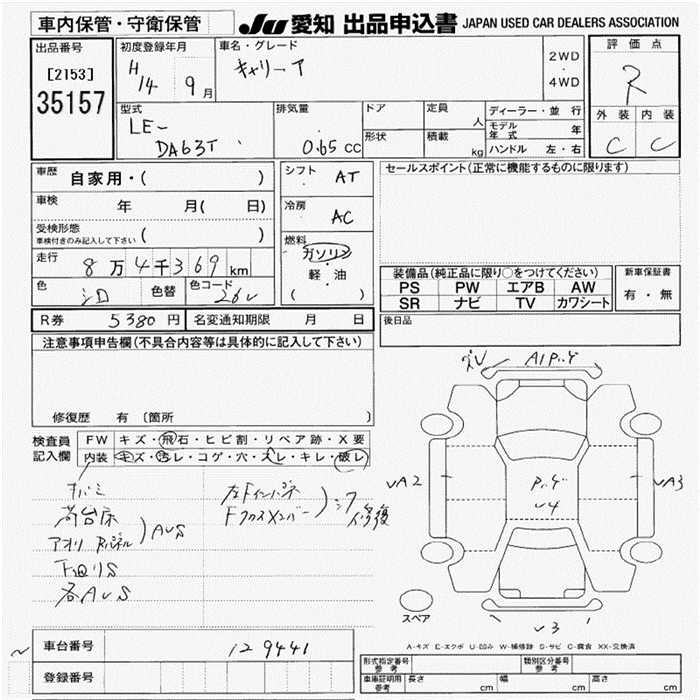 車内保管・守衛保管 JU 愛知 出品申込書 JAPAN USED CAR DEALERS ASSOCIATION
出品番号 初度登録年月 車名・グレード 2WD ・ 4WD 評価点
[2153] H14 9月 キャリーア R
35157
型式 排気量 ドア 定員 人 ディーラー・並行 外装 内装
LE- モデル年式 年 C C
DA63T 0.65 CC 形状 積載 kg ハンドル 左・右
車歴 自家用・( ) シフト AT セールスポイント(正常に機能するものに限ります)
車検 年 月( 日) 冷房 AC
受検形態 車検付きのみ記入して下さい ( )
燃料 ガソリン ・ 軽・油 ( )
走行 8万4千369km
色 シロ 色替 色コード 26U
装備品(純正品に限り○をつけてください) 新車保証書
PS PW エアB AW 有・無
SR ナビ TV カワシート
R券 5380円 名変通知期限 月 日 後日品
注意事項申告欄(不具合内容等は具体的に記入して下さい)
修復歴 有 〔箇所
検査員記入欄 FW キズ・飛石・ヒビ割・リペア跡・X要
内装 キズ・汚レ・コゲ・穴・スレ・キレ・破レ
荷台床 AUS
アオリ Rパネル
下廻りS
各AUS
左Fインパネ
Fクロスメンバー
修復
A1 P.ゲ
UA2 P.ゲ U4 UA3
スペア U3
A-キズ E-エクボ U-凹み W-補修跡 S-サビ C-腐食 XX-交換済
車台番号 129441
登録番号
形式指定番号 参考 類別区分番号 参考
車庫証明用 参考 長さ cm 幅 cm 高さ cm